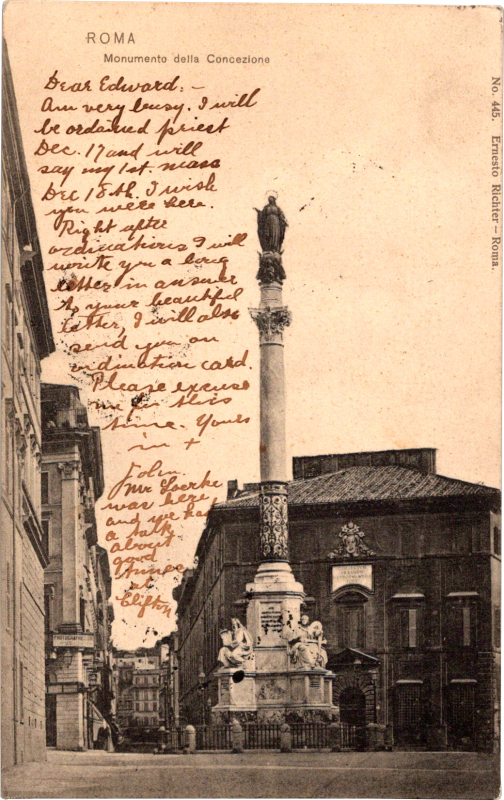 ROMA
Monumento della Concezione
No. 445. Ernesto Richter – Roma.
Dear Edward: –
Am very busy. I will
be ordained priest
Dec. 17 and will
say my 1st. mass
Dec 18th. I wish
you were here.
Right after
ordinations I will
write you a long
letter in answer
to your beautiful
letter, I will also
send you an
ordination card.
Please excuse
me for this
time. Yours
in +
John.
Mr was here
and we had
a talk
about
good
times
at
Clifton